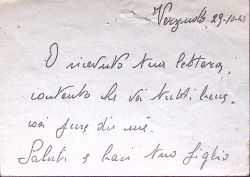 Verzuolo 29-10-43
O ricevuto tua lettera,
contento che voi tutti bene,
così pure di me.
Saluti e baci tuo figlio